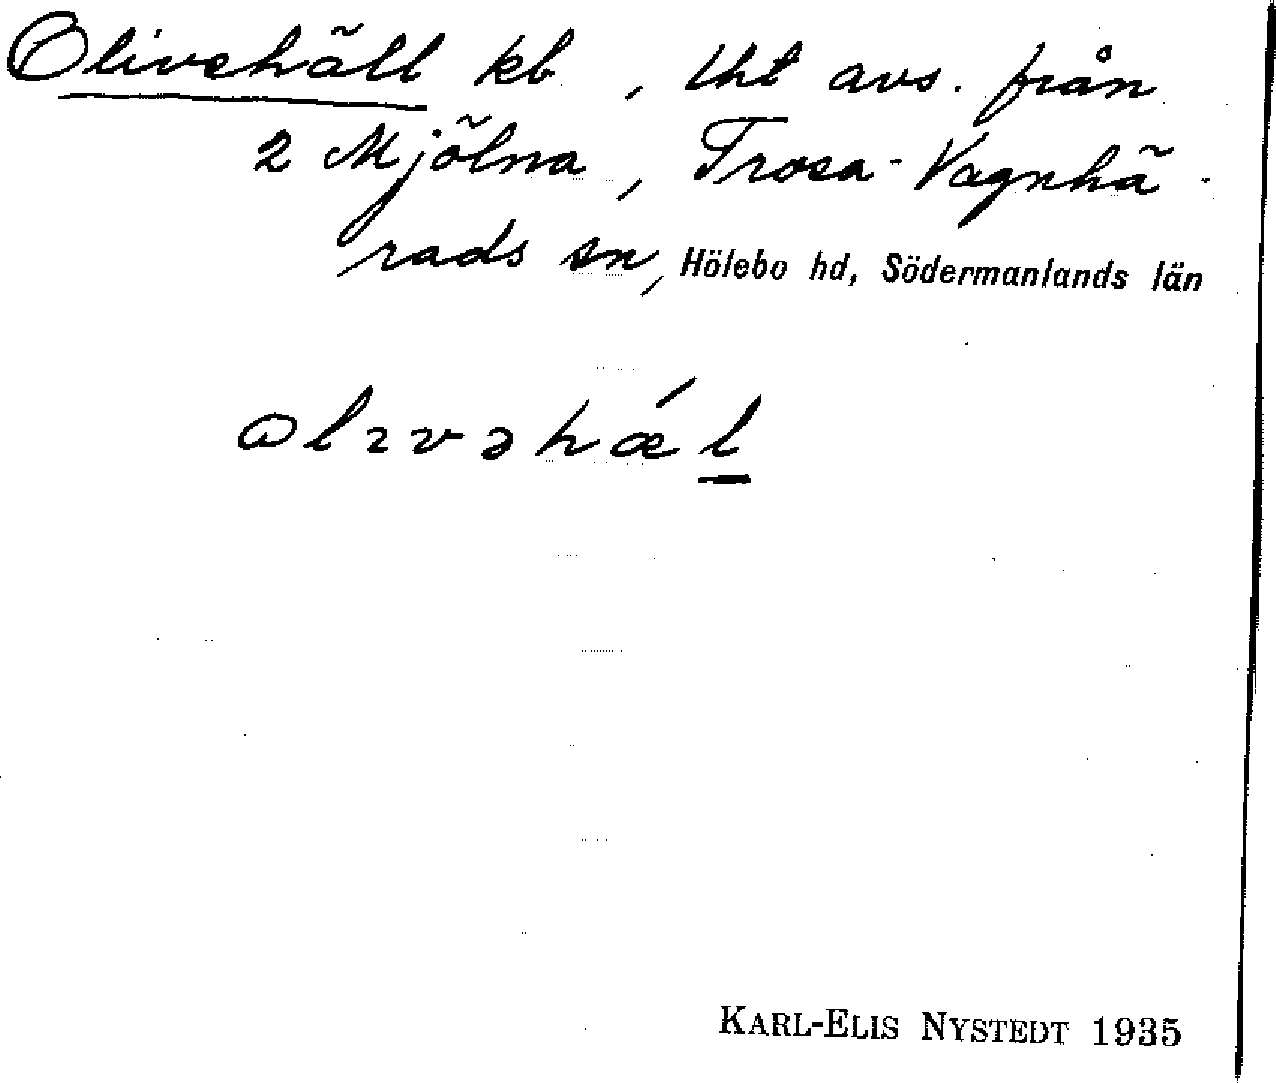 Olivehäll kb, lht avs. från
2 Mjölna, Trosa-Vagnhä-
rads sn, Hölebo hd, Södermanlands län
ωlɪvəhǽl
KARL-ELIS NYSTEDT 1935